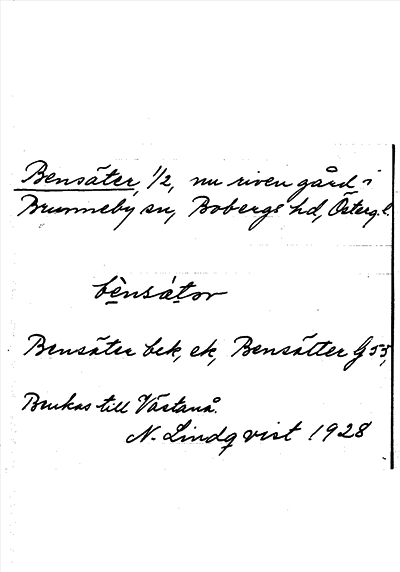 Bensäter, 1/2, nu riven gård i
Brunneby sn, Bobergs hd, Österg. l.
bènsátor
Bensäter bek, ek, Bensätter G 55,
Brukas till Västanå.
N. Lindqvist 1928